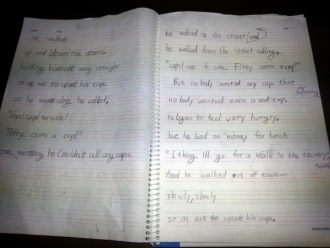 he walked
up and down the streets
holding himself very straight
so as not to upset his caps
as he went along he called,
"caps! caps to sale!
Fifty cents a cap!"
morning, he couldn't sell any caps.
he walked up the street and
he walked down the street calling,
"caps! caps to sale. Fifty cents a cap!"
But no body wanted any caps that
morning
no body wanted even a red cap.
he began to feel very hungry,
but he had no money for lunch
"I thing Ill go for a walk in the country,
And he walked out of town—
slowly, slowly
so as not to upset his caps.